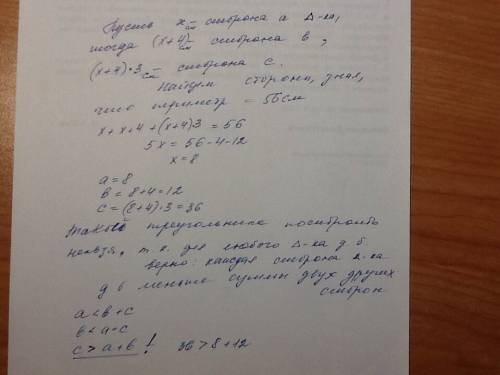 Пусть x см – сторона a Δ-ка,
тогда (x+4) см – сторона b,
(x+4)·3 см – сторона c.
Найдем стороны, зная,
что периметр = 56см
x+x+4+(x+4)3=56
5x=56-4-12
x=8
a=8
b=8+4=12
c=(8+4)·3=36
Такой треугольник построить
нельзя, т.к. для любого Δ-ка д.б.
верно: каждая сторона Δ-ка
д.б меньше суммы двух других
сторон
a<b+c
b<a+c
c>a+b! 36>8+12